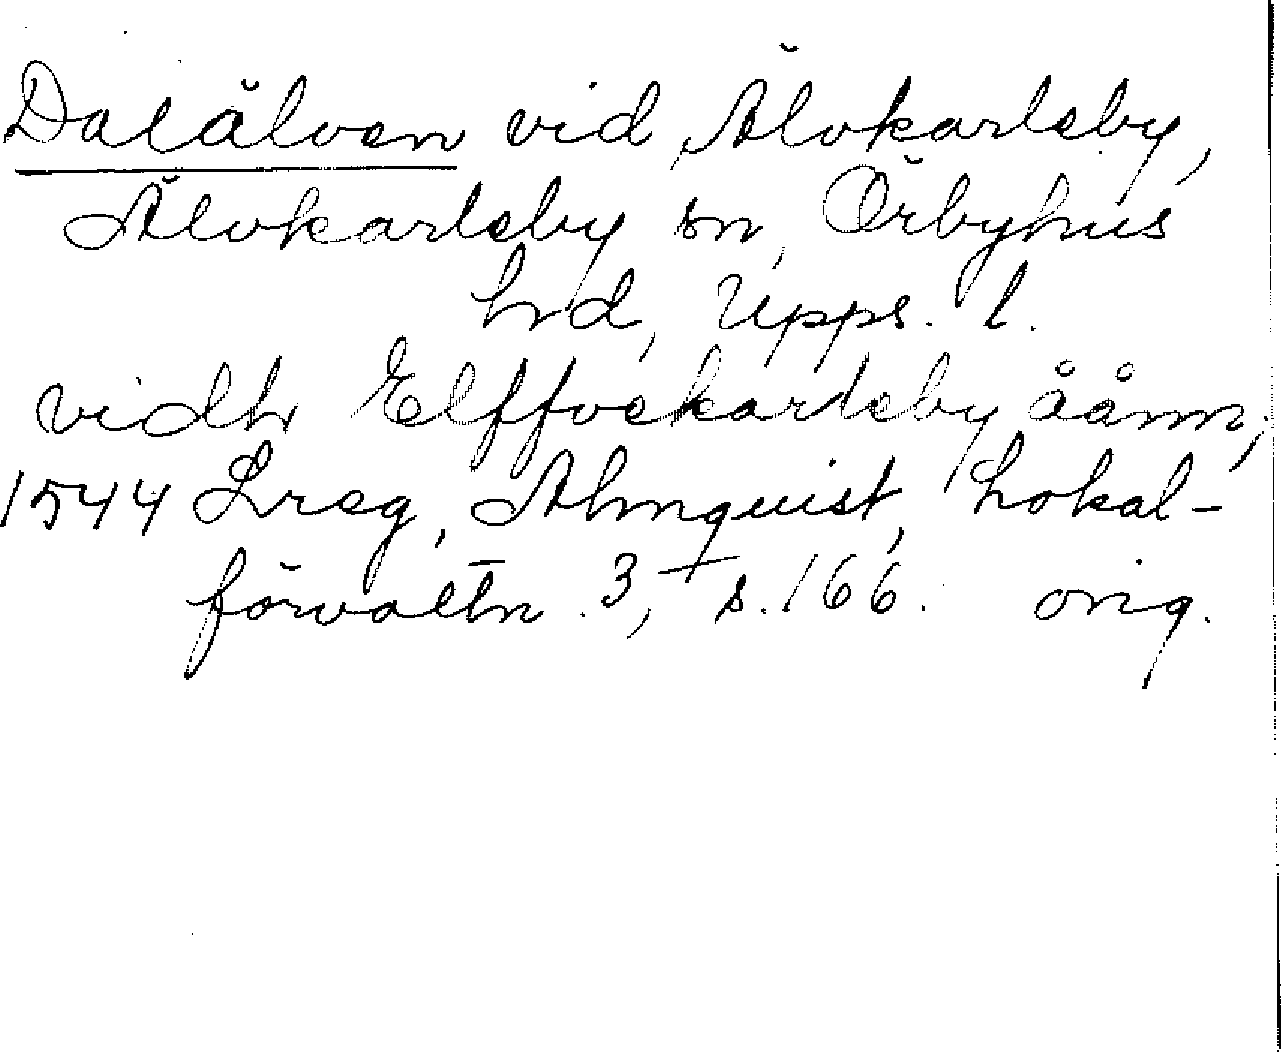 Dalälven vid Älvkarleby,
Älvkarleby sn, Örbyhus
hd, Upps. l.
vidh Elffvekarleby åånn,
1544 Lreg, Almquist, Lokal-
förvaltn. 3, s. 166. orig.